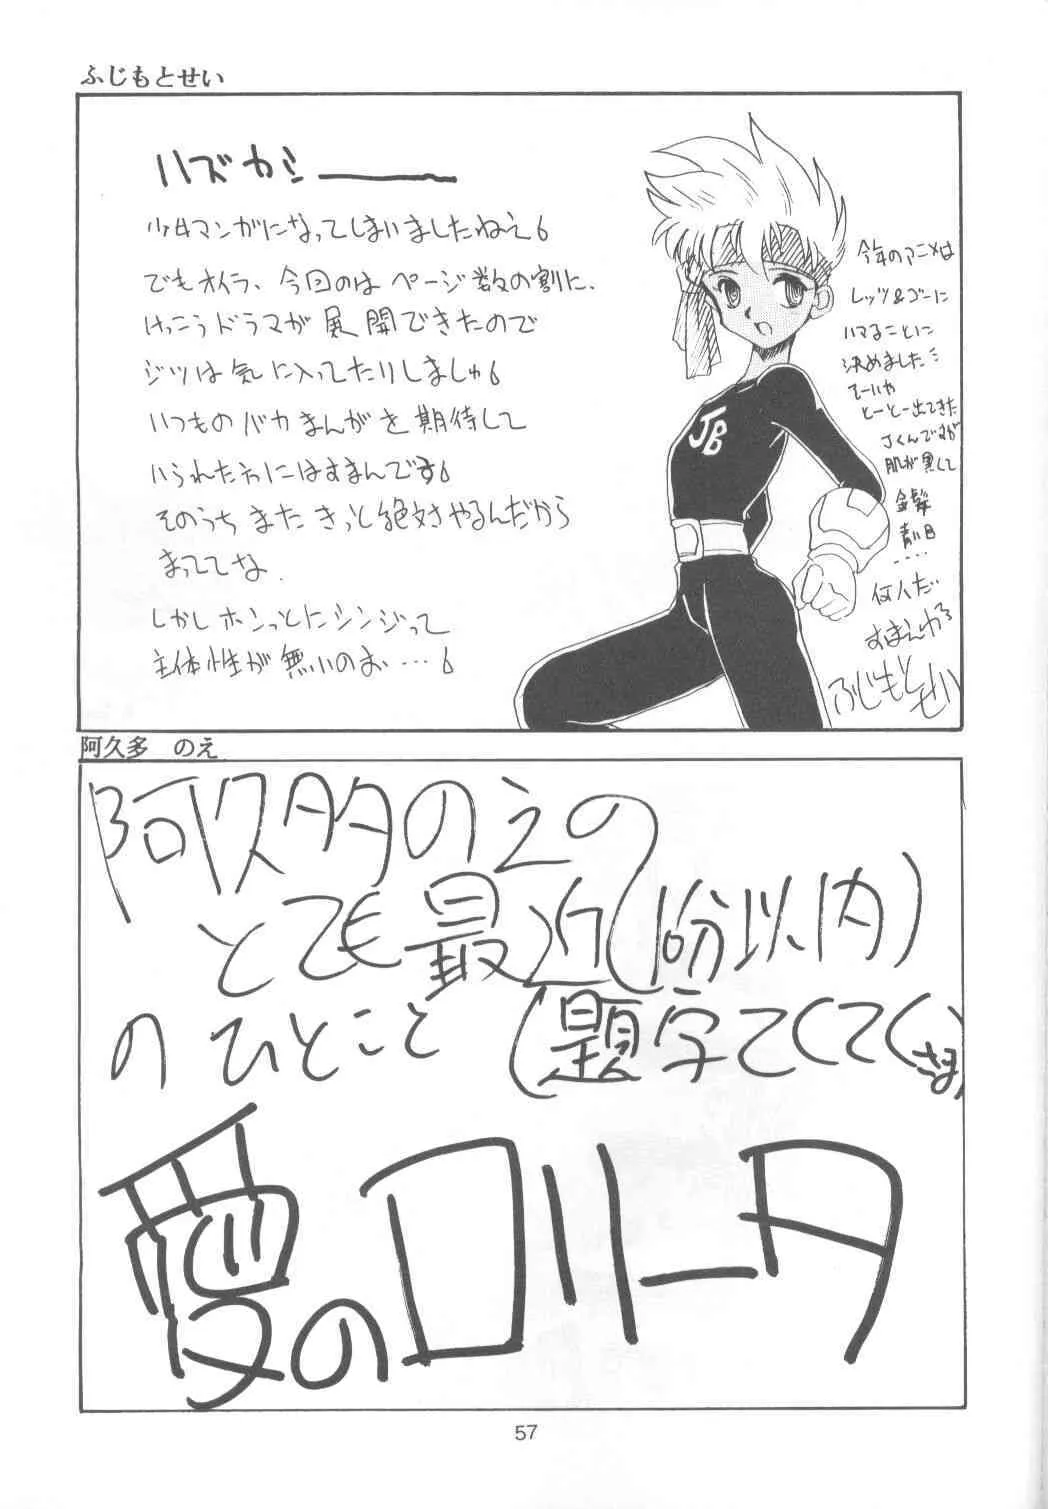 ふじもとせい
ハズカシ――――
少年マンガになってしまいましたねえ。
でもオイラ、今回のはページ数の割に、
けっこうドラマが展開できたので
ジツは気に入ってたりしましゅ。
いつものバカまんがを期待して
いられた方にはすまんです。
そのうちまたきっと絶対やるんだから
まっててな.
しかしホンっとにシンジって
主体性が無いのお…。
JB
今年のアニメは
レッツ&ゴーに
ハマることに
決めました
てーいや
とーとー出てきた
Jくんですが
肌が黒くて
金髪
青い目
....
何人だ
すまんかろ
ふじもとせい
阿久多 のえ
阿久多のえの
とても最近(1分以内)
のひとこと(題字てくてくさま)
愛のロリータ
57